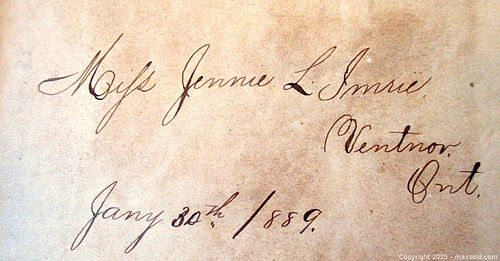 Miss Jennie L. Imrie.
Ventnor.
Ont.
Jany 30th /889.
Copyright 2025 - maxsold.com